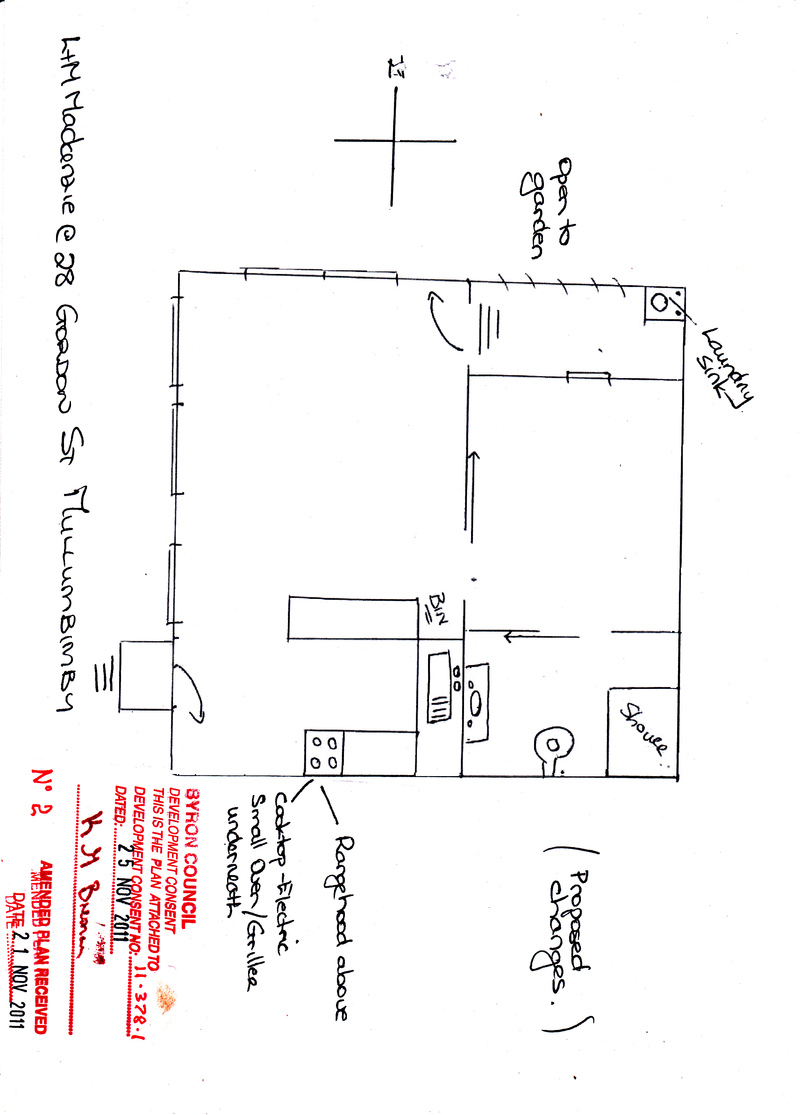 N
Open to
garden
Laundry
Sink
L+M Mackenzie @ 28 Gordon St Mullumbimby
BIN
Shower
Rangehood above
Cooktop-Electric
Small Oven/Griller
underneath
(Proposed
changes.)
BYRON COUNCIL
DEVELOPMENT CONSENT
THIS IS THE PLAN ATTACHED TO
DEVELOPMENT CONSENT NO: 11.378.1
DATED: 25 NOV 2011
No 2
AMENDED PLAN RECEIVED
DATE 21 NOV 2011